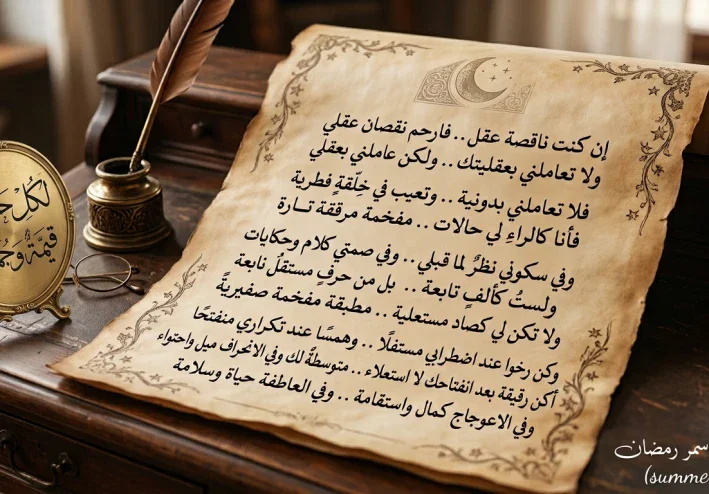 إن كنت ناقصة عقل .. فارحم نقصان عقلي
ولا تعاملني بعقليتك .. ولكن عاملني بعقلي
فلا تعاملني بدونية .. وتعيب في خِلّقةٍ فطرية
فأنا كالراءِ لي حالات .. مفخمة مرققة تـارة
وفي سكوني نظرٌ لما قبلي .. وفي صمتي كلام وحكايات
ولستُ كألفٍ تابعة .. بل من حرفٍ مستقلُ نابعة
ولا تكن لي كصاد مستعلية .. مطبقة مفخمة صفيريةً
وكن رخوا عند اضطرابي مستفلًا .. وهمسًا عند تكراري منفتحًا
أكن رقيقة بعد انفتاحك لا استعلاء .. متوسطةً لك وفي الانحراف ميل واحتواء
وفي الاعوجاج كمال واستقامة .. وفي العاطفة حياة وسلامة
لكُلِ
قيمَّة
سمر رمضان
(summe